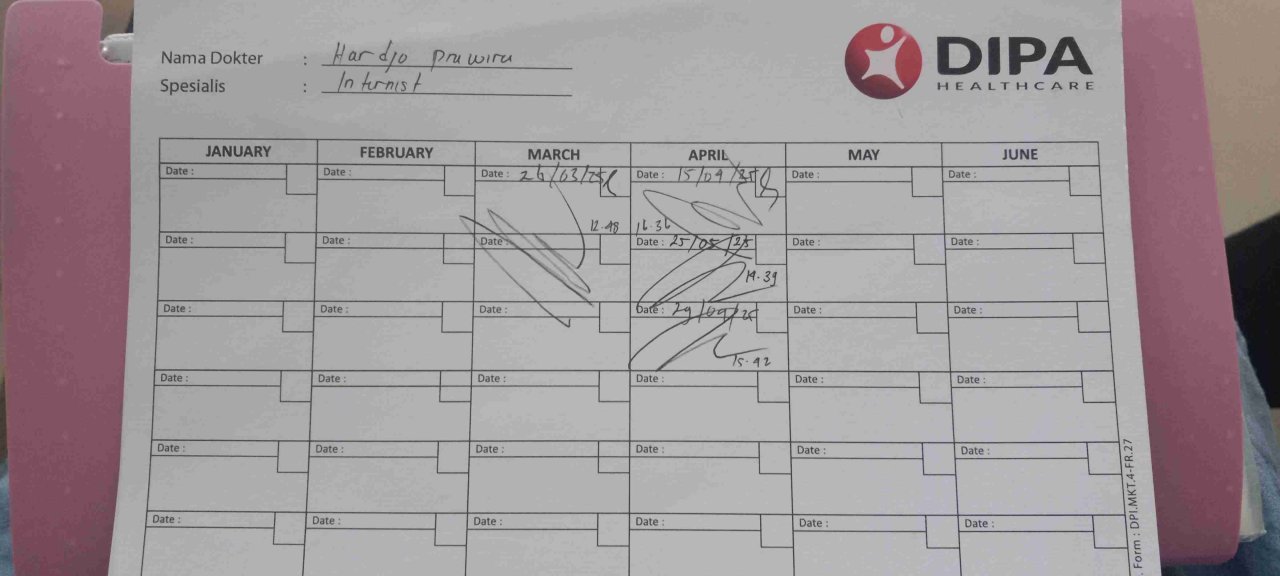 Nama Dokter : Hardjo Prawira
Spesialis : Internist
DIPA
HEALTHCARE
JANUARY FEBRUARY MARCH APRIL MAY JUNE
Date : Date : Date : 26/03/25 Date : 15/04/25 Date : Date :
12.48 16.36
Date : Date : Date : Date : 25/05/25 Date : Date :
14.39
Date : Date : Date : Date : 29/04/25 Date : Date :
15.42
Date : Date : Date : Date : Date : Date :
Date : Date : Date : Date : Date : Date :
Date : Date : Date : Date : Date : Date :
. Form : DPI.MKT.4-FR.27